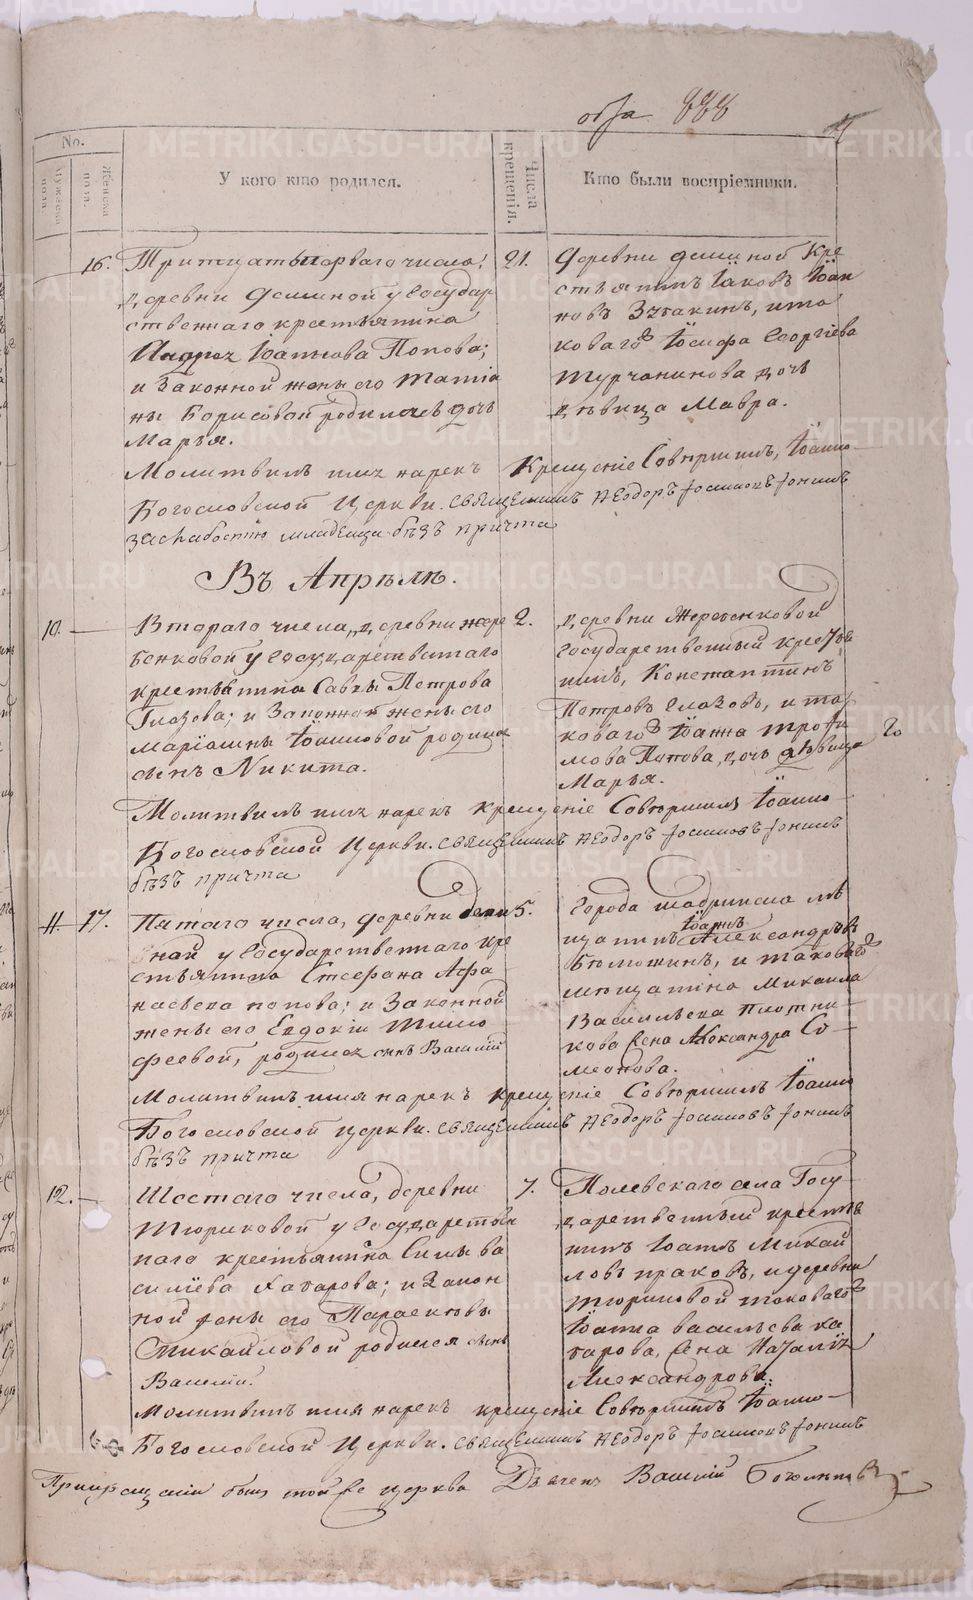 888
No.
Мужеска пола
Женска пола.
У кого кто родился.
Числа крещенія.
Кто были воспріемники.
16.
Тритцатьпарваго числа,
деревни у Государ
ственнаго крестьянина
Іоаннова Попова;
и Законной жены его Татіа
ны Борисовой родилась дочь
Марья.
21.
Деревни Кре
стьянинъ Іаковъ Іоан
новъ и та
коваго Іосифа Георгіева
Турчанинова дочь
дѣвица Мавра.
Молитвилъ имя нарекъ Крещеніе Совершилъ, Іоанно
Богословской Церкви. священникъ Ѳеодоръ
младенца безъ причта
Въ Апрѣлѣ.
10.
Втораго числа, деревни Жере
бенковой у Государственнаго
крестьянина Саввы Петрова
Глазова; и Законной жены его
Маріамны Іоанновой родился
сынъ Никита.
2.
деревни Жеребенковой
Государственный кресть
нинъ, Константинъ
Петровъ Глазовъ, и та
коваго Іоанна Трофи
мова Попова, дочь дѣвица
Марья.
Молитвилъ имя нарекъ крещеніе Совершилъ Іоанно
Богословской Церкви. священникъ Ѳеодоръ
безъ причта
11.
17.
Пятаго числа, деревни
у Государственнаго кре
стьянина Стефана Афа
насьева попова; и Законной
жены его Евдокіи Тимо
феевой, родился сынъ Василій
5.
Города шадринска мѣ
щанинъ Іоаннъ Александровъ
и таковаго
мещанина Михаила
Васильева Плотни
кова Александра Со
Молитвилъ имя нарекъ крещеніе Совершилъ Іоанно
Богословской церкви. священникъ Ѳеодоръ
безъ причта
12.
Шестаго числа, деревни
Тюриковой у Государствен
наго крестьянина Силы ва
силіева Хабарова; и Закон
ной жены его Параскевы
Михайловой родился сынъ
Василій.
7.
Полевскаго села Госу
дарственный крестья
нинъ Іоаннъ Михай
ловъ и деревни
Тюриковой таковаго
Іоанна васильева ха
барова, жена Наталія
Александрова.
Молитвилъ имя нарекъ крещеніе Совершилъ Іоанно
Богословской Церкви. священникъ Ѳеодоръ
При крещеніи былъ той же церкви Дьячекъ Василій
METRIKI.GASO-URAL.RU